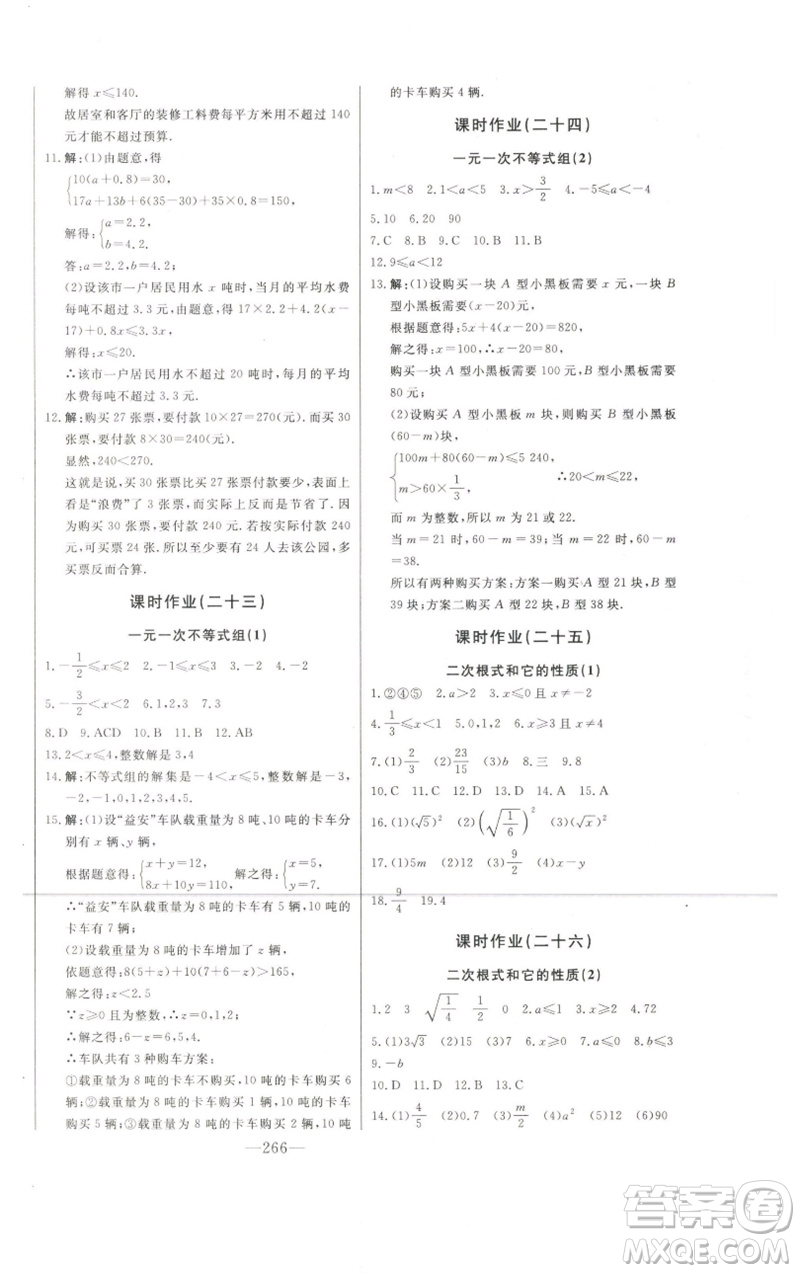 解得 x≤140.
故居室和客厅的装修工料费每平方米用不超过 140
元才能不超过预算.
11. 解:(1)由题意,得
{10(a+0.8)=30,
17a+13b+6(35-30)+35×0.8=150,
解得:{a=2.2,
b=4.2.
答:a=2.2,b=4.2.
(2)设该市一户居民用水 x 吨时,当月的平均水费
每吨不超过 3.3 元,由题意,得 17×2.2+4.2(x-
17)+0.8x≤3.3x,
解得:x≤20.
∴该市一户居民用水不超过 20 吨时,每月的平均
水费每吨不超过 3.3 元.
12. 解:购买 27 张票,要付款 10×27=270(元). 而买 30
张票,要付款 8×30=240(元).
显然,240<270.
这就是说,买 30 张票比买 27 张票付款要少,表面上看
是“浪费”了 3 张票,而实际上反而是节省了.
因为购买 30 张票,需付款 240 元. 若按实际付款
240 元,可购票 24 张. 所以至少要有 24 人去该公园,多
买票反而合算.
课时作业(二十三)
一元一次不等式组(1)
1. -1/2≤x≤2 2. -1<x≤1 3. x≤-2 4. -2
5. -3/2<x≤2 6. 1,2,3 7. 3
8. D 9. ACD 10. B 11. B 12. AB
13. 2<x≤4,整数解是 3,4
14. 解:不等式组的解集是-4<x≤5,整数解是-3,
-2,-1,0,1,2,3,4,5.
15. 解:(1)设“益安”车队载重量为 8 吨、10 吨的卡车分
别有 x 辆、y 辆,
{x+y=12,
8x+10y=110, 解之得:{x=5,
y=7.
∴“益安”车队载重量为 8 吨的卡车有 5 辆,10 吨的
卡车有 7 辆;
(2)设载重量为 8 吨的卡车增加了 z 辆,
依题意得:8(5+z)+10(7+6-z)>165,
解之得:z<2.5
∵z≥0 且为整数,∴z=0,1,2;
∴解之得:6-z=6,5,4.
∴车队共有 3 种购车方案:
①载重量为 8 吨的卡车不购买,10 吨的卡车购买 6
辆;②载重量为 8 吨的卡车购买 1 辆,10 吨的卡车
购买 5 辆;③载重量为 8 吨的卡车购买 2 辆,10 吨
的卡车购买 4 辆.
课时作业(二十四)
一元一次不等式组(2)
1. m<8 2. 1<a<5 3. x>3/2 4. -5≤a<-4
5. 10 6. 20 90
7. C 8. B 9. D 10. C 11. B
12. 9≤a<12
13. 解:(1)设购买一块 A 型小黑板需要 x 元,一块 B
型小黑板需要(x-20)元.
根据题意得:5x+4(x-20)=820,
解之得:x=100,∴x-20=80,
购买一块 A 型小黑板需要 100 元,B 型小黑板需要
80 元;
(2)设购买 A 型小黑板 m 块,则购买 B 型小黑板
(60-m)块,
{100m+80(60-m)≤5 240,
m>60×1/3, ∴20<m≤22,
而 m 为整数,所以 m 为 21 或 22.
当 m=21 时,60-m=39;当 m=22 时,60-m
=38.
所以有两种购买方案:方案一购买 A 型 21 块,B 型
39 块;方案二购买 A 型 22 块,B 型 38 块.
课时作业(二十五)
二次根式和它的性质(1)
1. ②④⑤ 2. a>2 3. x≤0 且 x≠-2
4. 1/3≤x<1 5. 0,1,2 6. x≥3 且 x≠4
7. (1)2/3 (2)23/15 8. 三 9. 8
10. C 11. C 12. A 13. A 14. B 15. D
16. (1)(√5)² (2)(√(1/6))² (3)9/2
17. (1)5m (2)1/2 (3)9/2 (4)x-y
18. 9/4 19. 4
课时作业(二十六)
二次根式和它的性质(2)
1. 2 3 √(1/4) √(1/2) 0 2. a≤1 3. x≥2 4. 72
5. (1)3√3 (2)-√6 6. > 7. 5 8. 2
9. -b
10. D 11. A 12. D 13. D
14. (1)4/5 (2)0.7 (3)m/2 (4)a² (5)12 (6)90
—266—
答案圈
MXQE.COM